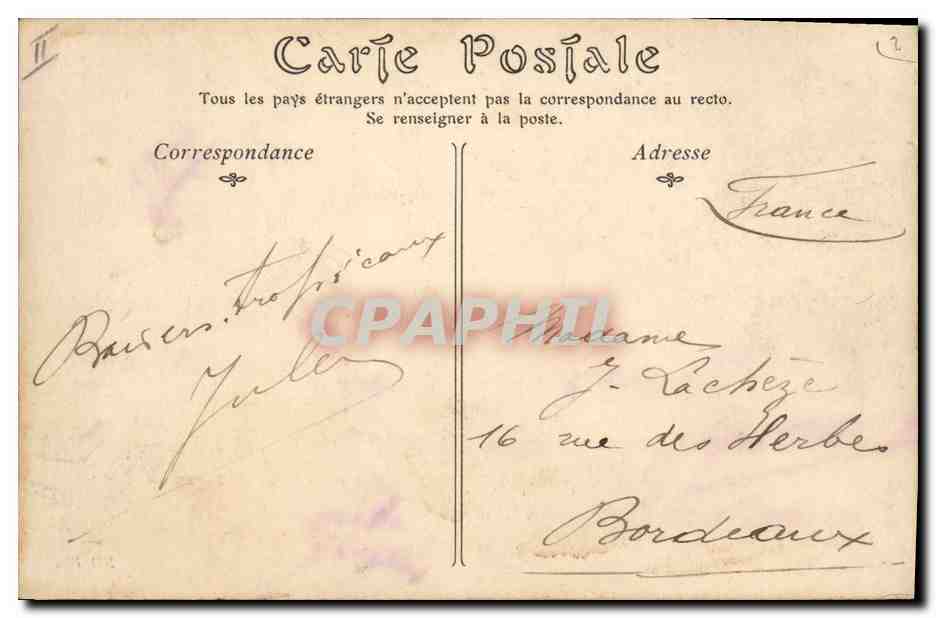 II
2
Carte Postale
Tous les pays étrangers n'acceptent pas la correspondance au recto.
Se renseigner à la poste.
Correspondance
Adresse
France
Baisers tropicaux
Jules
CPAPHIL
Madame
J. Lachèze
16 rue des Herbes
Bordeaux